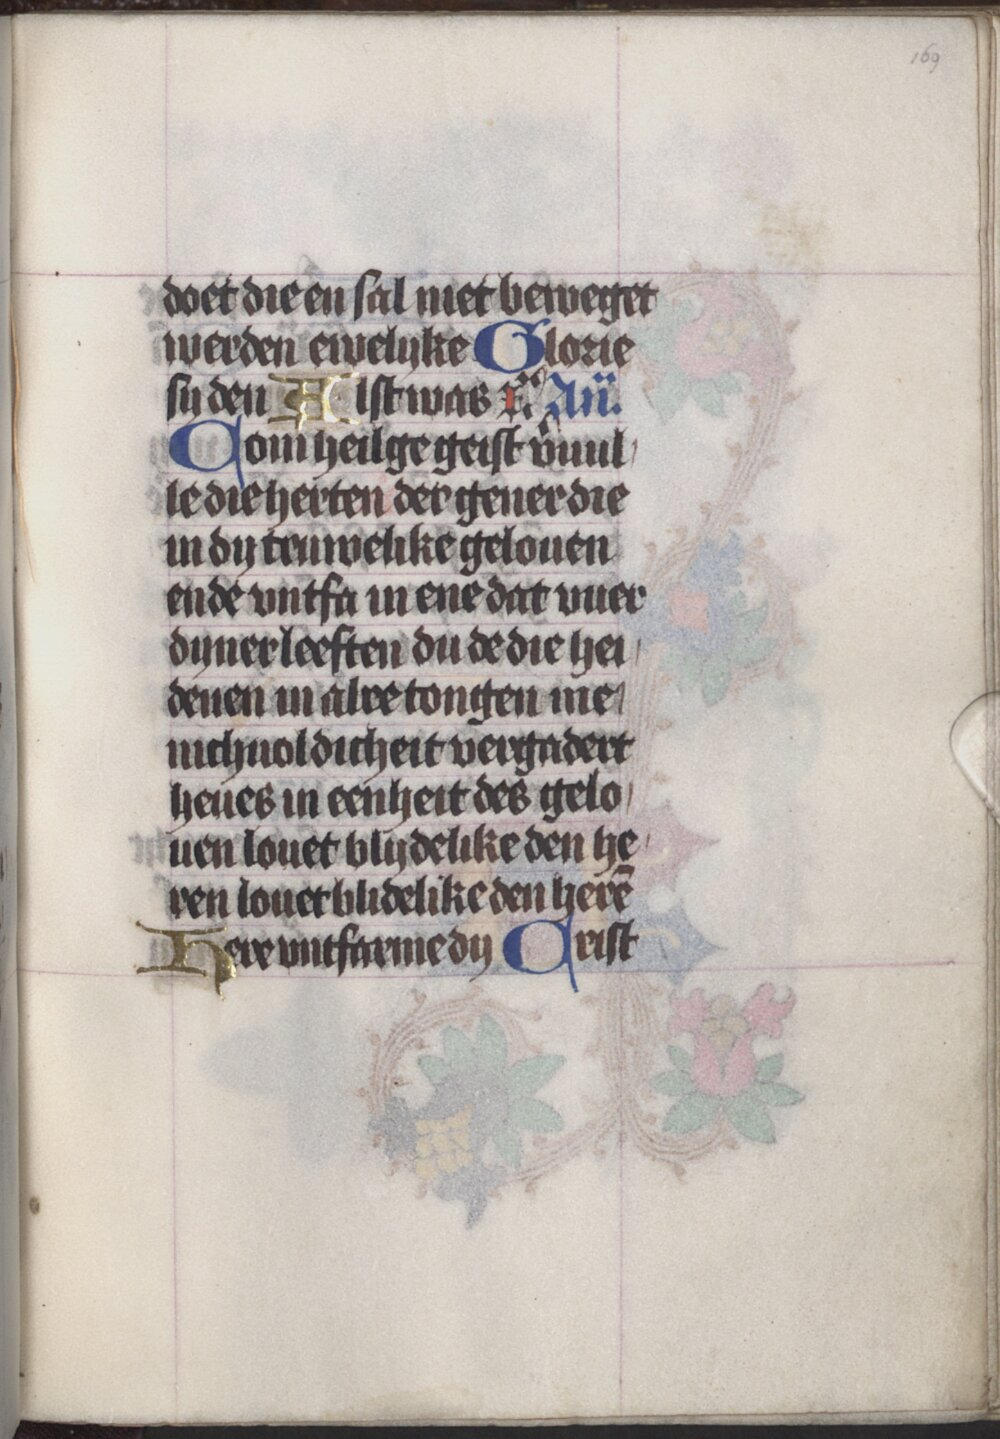 169
doet die en sal niet beweget
werden ewelijke Glorie
sij den Alst was
Com heilge geist
le die herten der gener die
in dij truwelike gelouen
ende vntfa in ene dat vuer
dijner leeften du de die hei
denen in alre tongen me
nichuoldicheit vergadert
heues in eenheit des gelo
uen louet blijdelike den he
ren louet blidelike den herē
Here vntfarme dij Crist